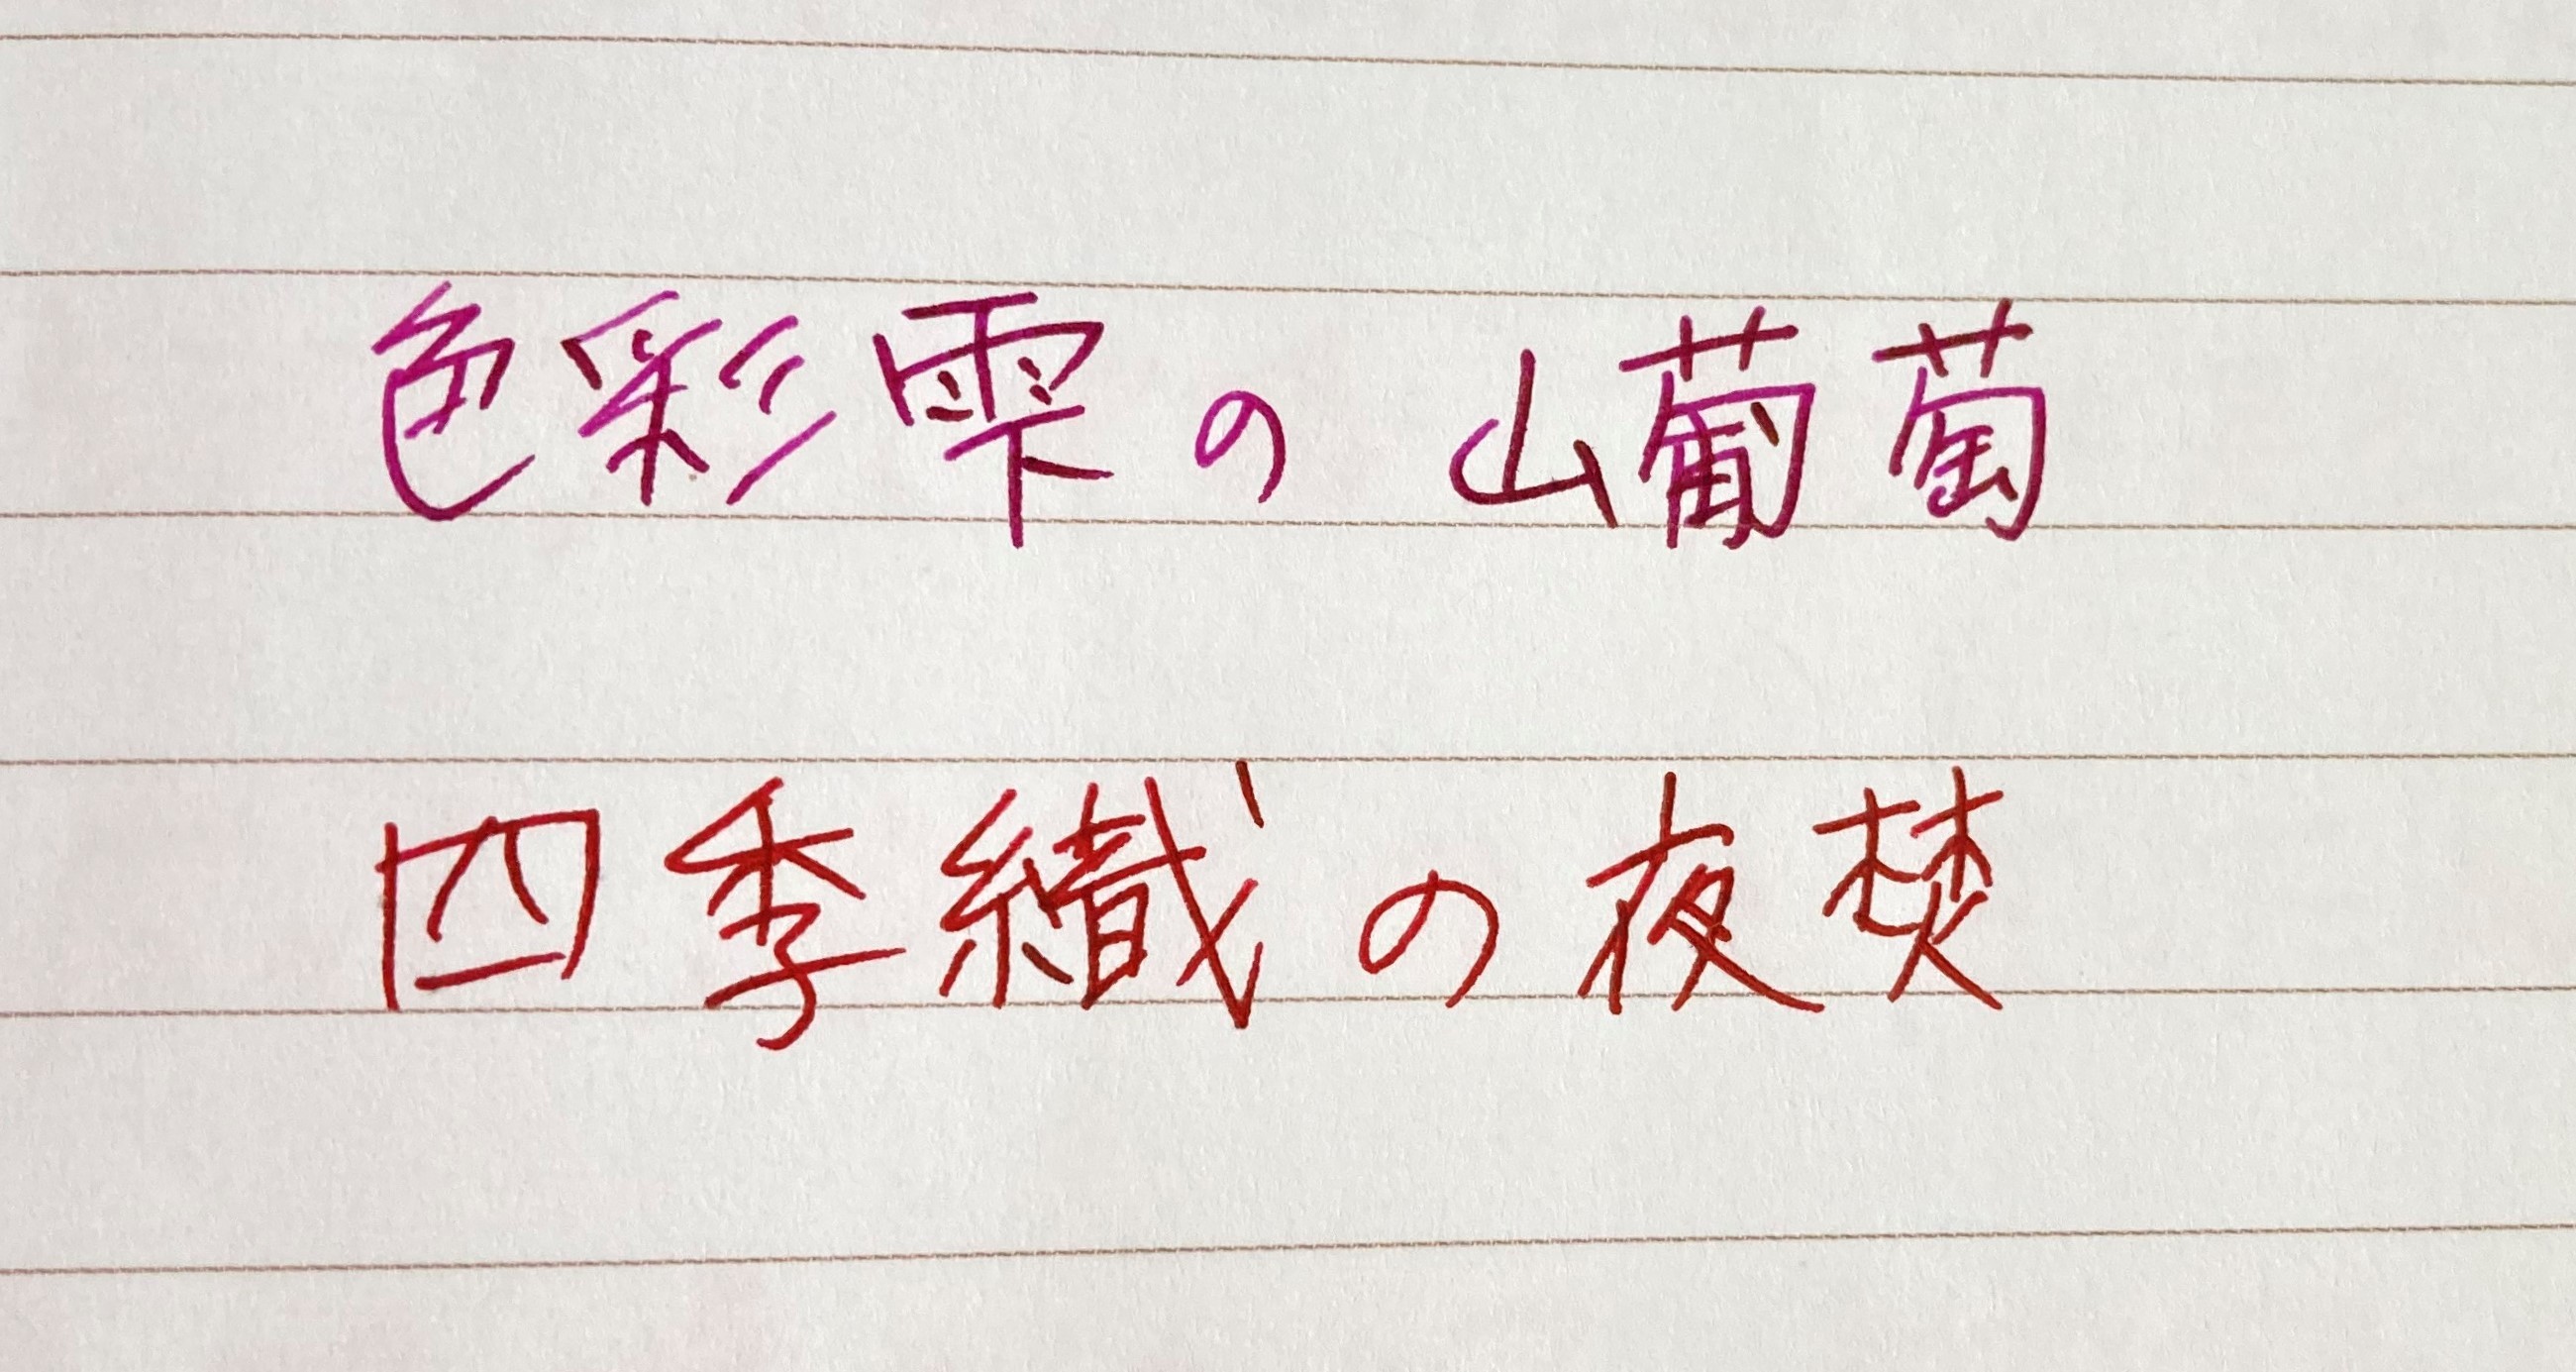 色彩雫の 山葡萄
四季織の夜焚